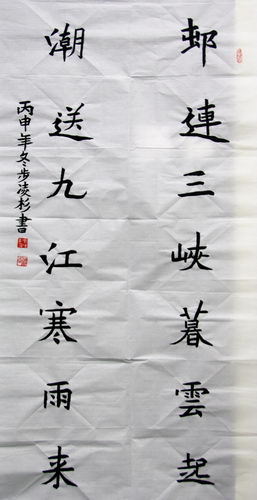 邨連三峽暮雲起
潮送九江寒雨来
丙申年冬步凌杉書